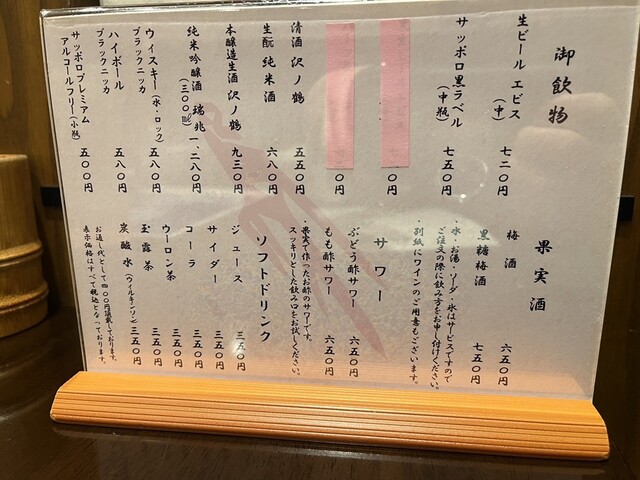 御飲物
生ビール エビス（中） 七二〇円
サッポロ黒ラベル（中瓶） 七五〇円
〇円
〇円
清酒 沢ノ鶴 五五〇円
生酛 純米酒 六八〇円
本醸造生酒 沢ノ鶴 九三〇円
純米吟醸酒 瑞兆（三〇〇㎖） 一、二八〇円
ウィスキー（水・ロック）
ブラックニッカ 五八〇円
ハイボール
ブラックニッカ 五八〇円
サッポロプレミアム
アルコールフリー（小瓶） 五〇〇円
果実酒
梅酒 六五〇円
黒糖梅酒 七五〇円
・水・お湯・ソーダ・氷はサービスですので
ご注文の際に飲み方をお申し付けください。
・別紙にワインのご用意もございます。
サワー
ぶどう酢サワー 六五〇円
もも酢サワー 六五〇円
・果実で作ったお酢のサワーです。
スッキリとした飲み口をお試しください。
ソフトドリンク
ジュース 三五〇円
サイダー 三五〇円
コーラ 三五〇円
ウーロン茶 三五〇円
玉露茶 三五〇円
炭酸水（ウィルキンソン） 三五〇円
お通し代として四〇〇円頂戴しております。
表示価格はすべて税込となっております。